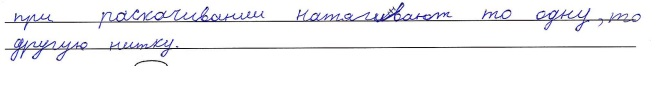 при раскачивании натягивают то одну, то
другую нитку.